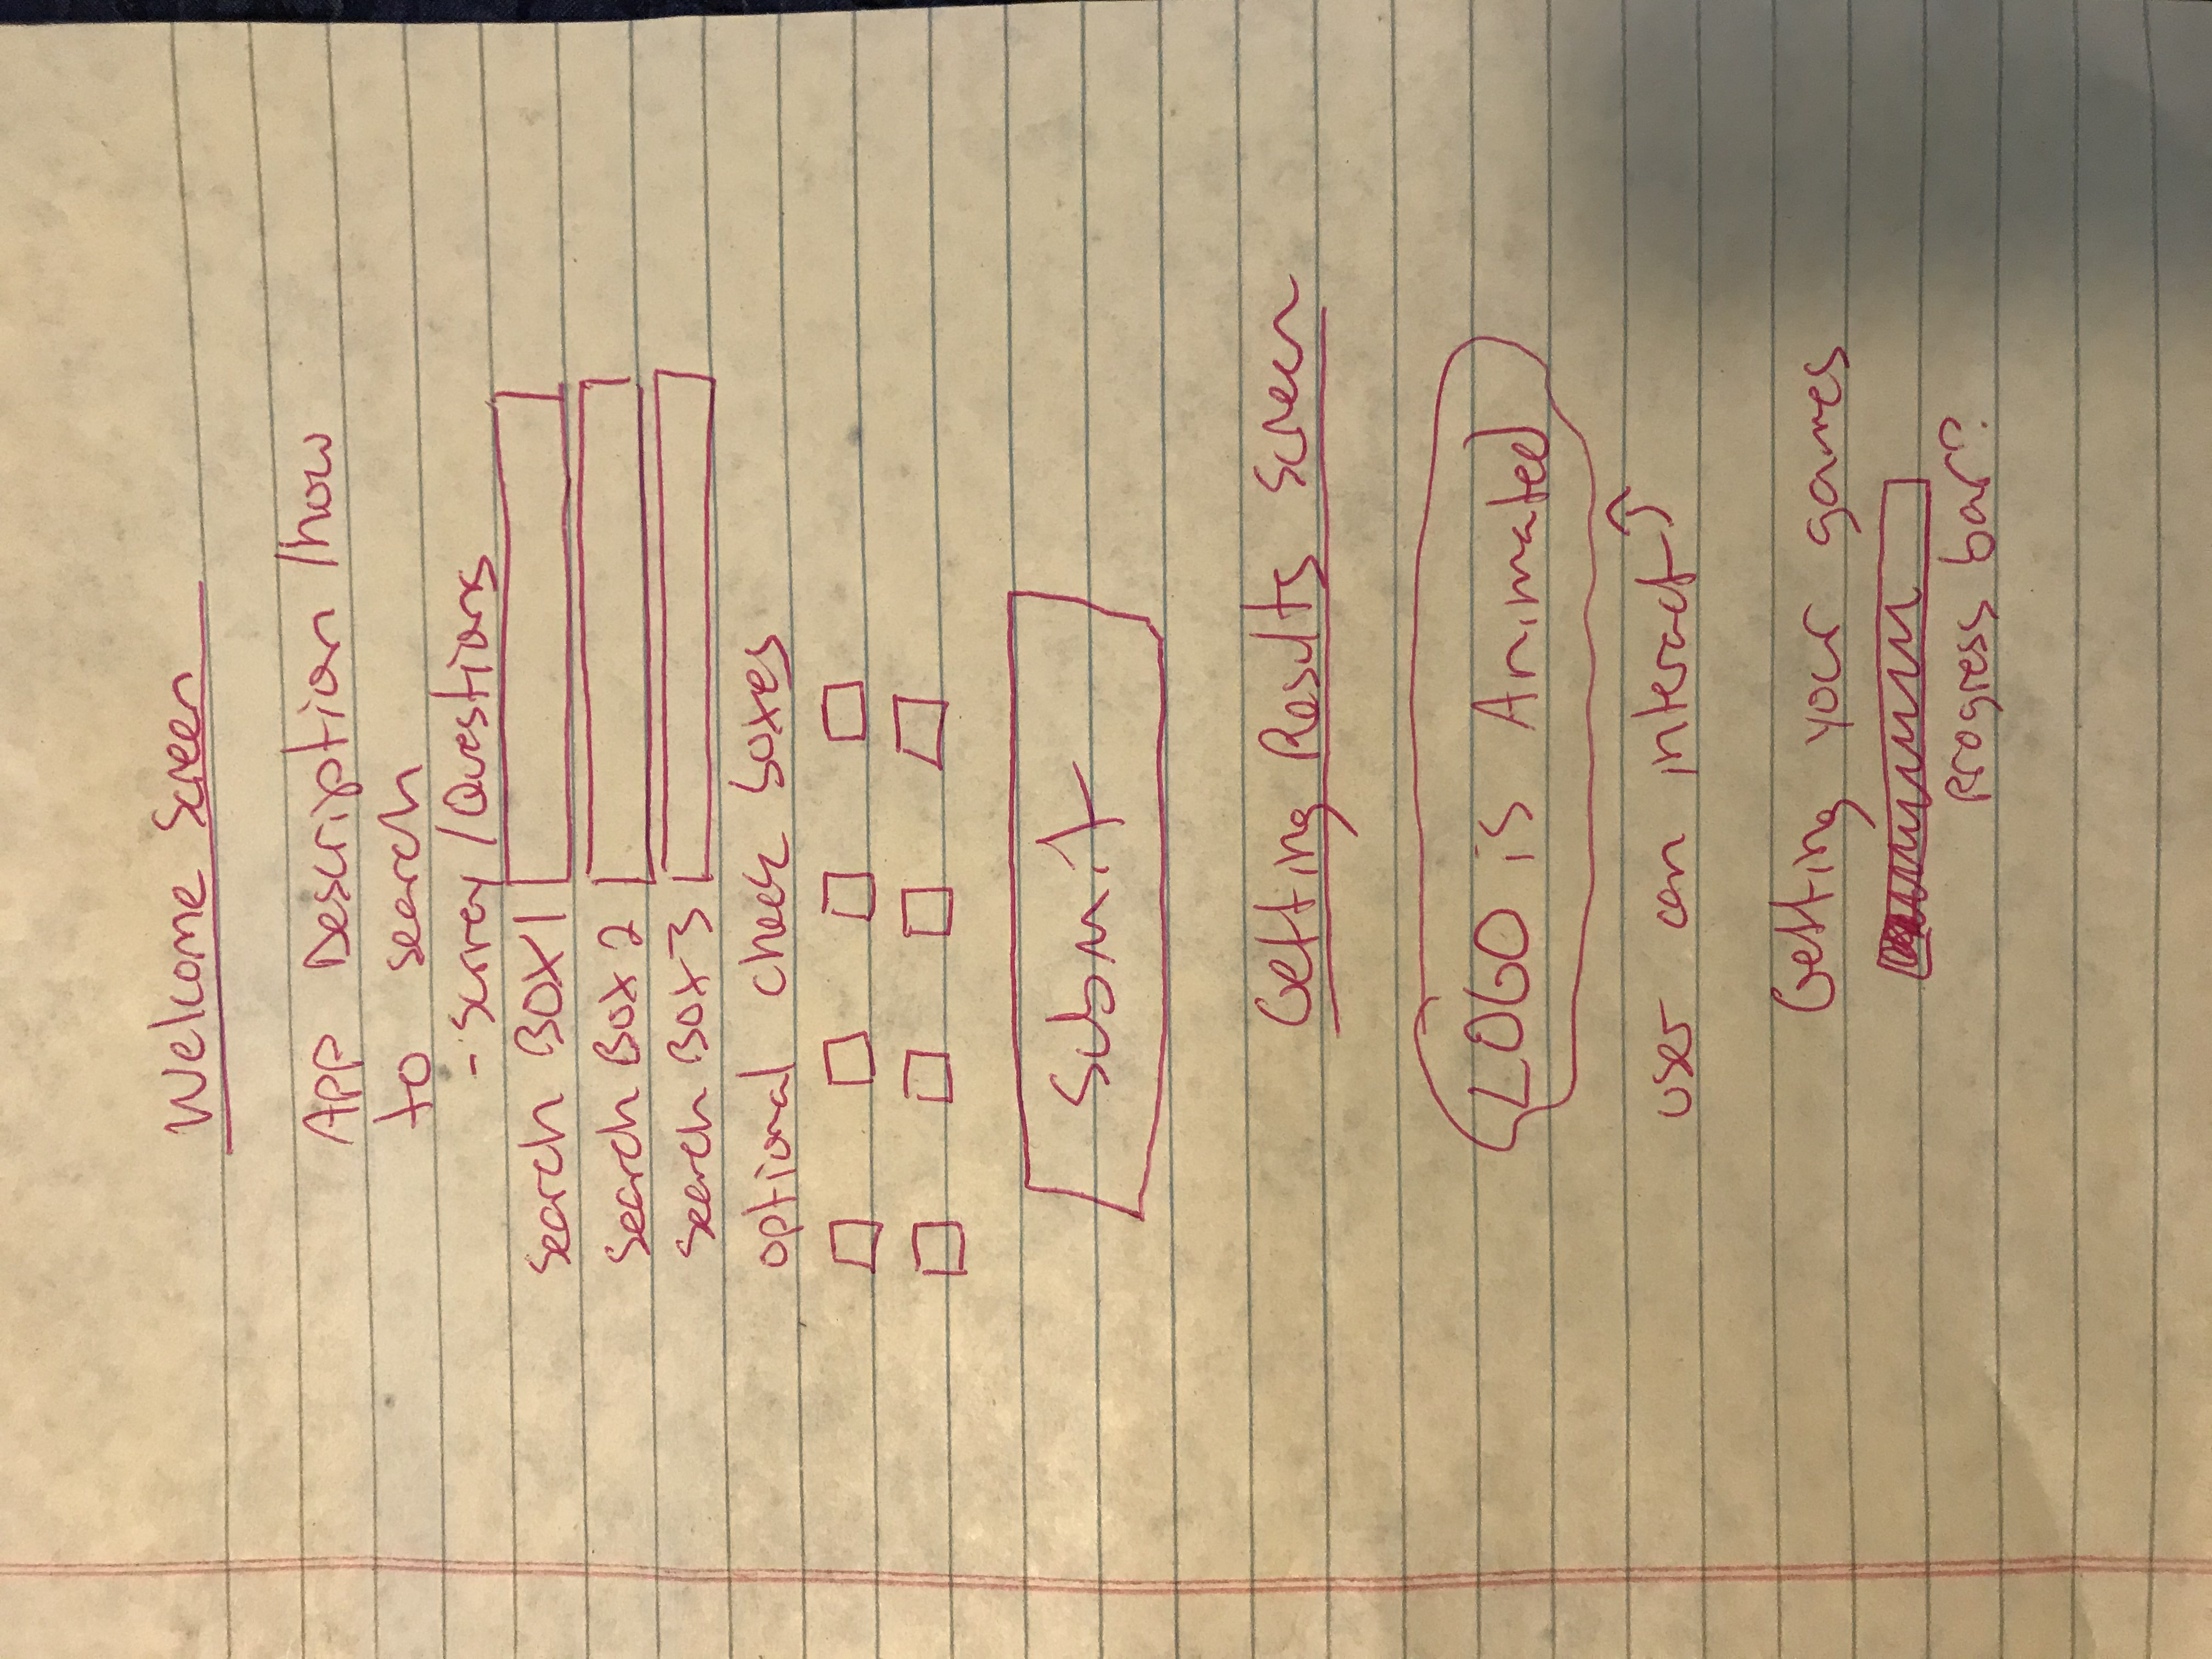 Welcome Screen
App Description / how
to search
- Survey / Questions
Search BOX 1
Search Box 2
Search Box 3
optional check boxes
Submit
Getting Results Screen
LOGO is Animated
user can interact
Getting your games
Progress bar?